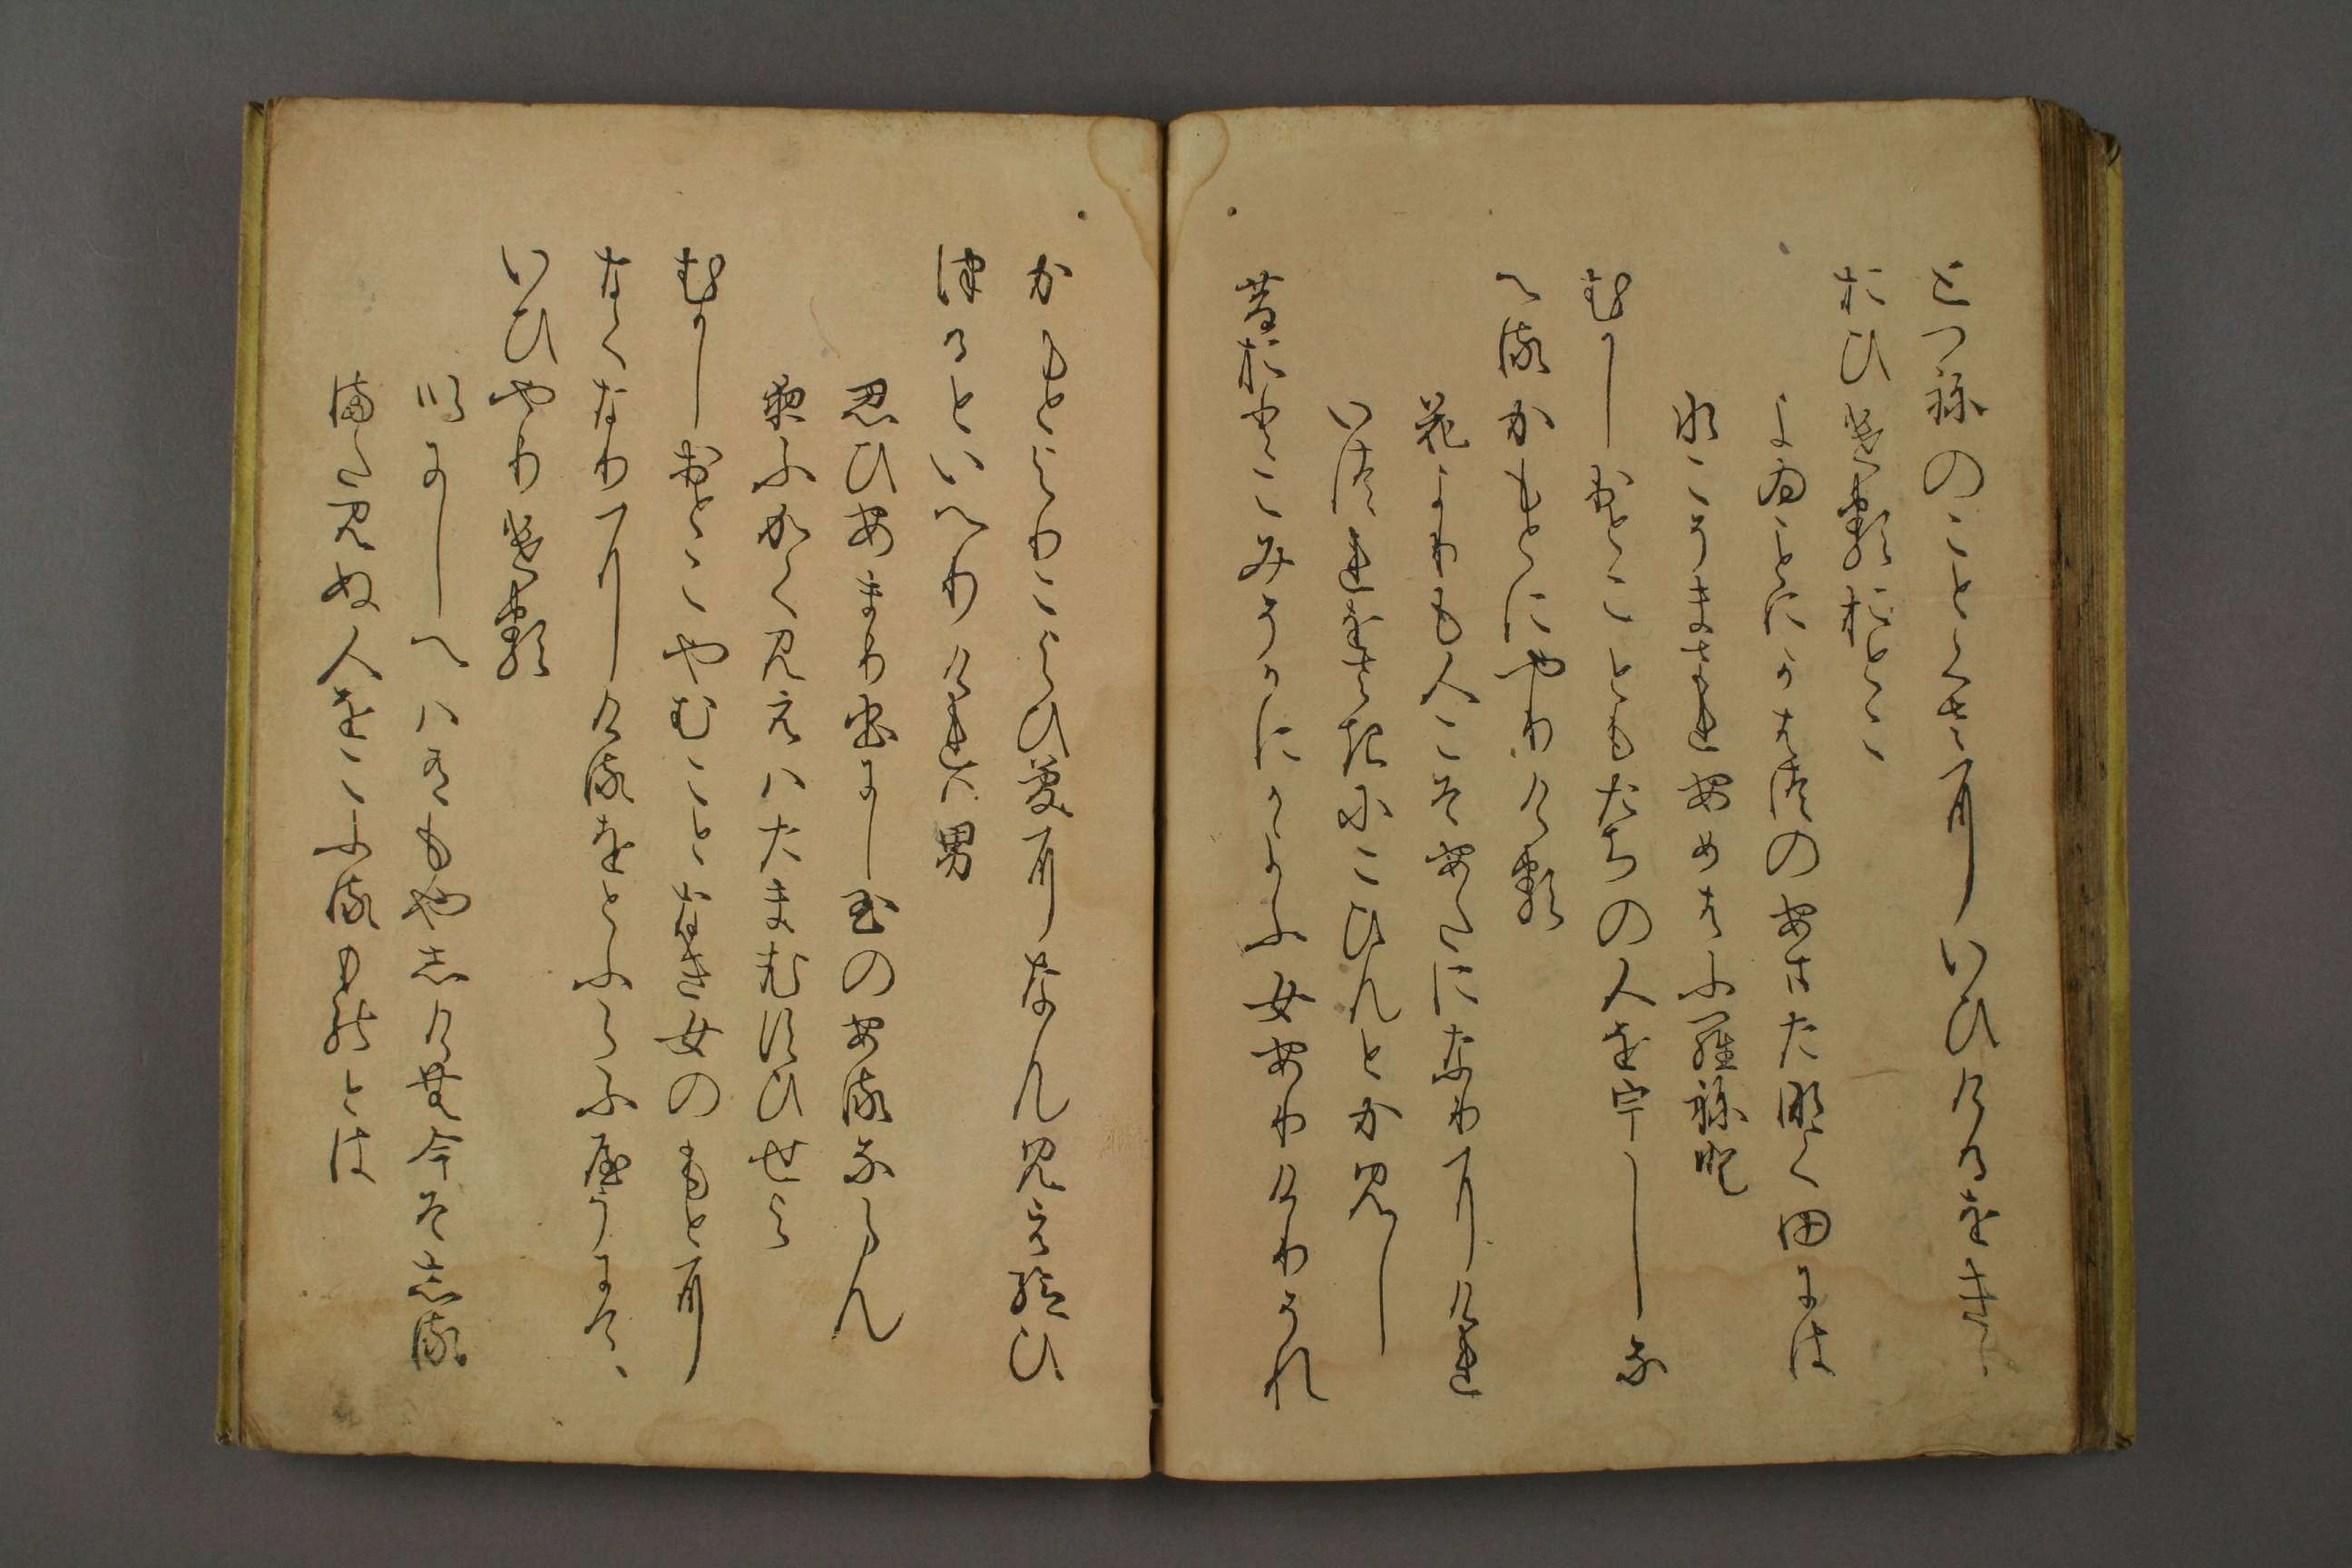 とつねのことくさにいひけるをきゝ
おひけるおとこ
よゐことにかはつのあまたなく田には
水こそまされあめはふらねと
むかしおとこともたちの人をうしな
へるかもとにやりける
花よりも人こそあたになりにけれ
いつれをさきにこひんとか見し
昔おとこみそかにかよふ女ありけりそれ
かもとよりこよひ夢になん見え給ひ
つるといへりけれは男
思ひあまり出にし玉のあるならん
夜ふかく見えはたまむすひせよ
むかしおとこやむことなき女のもとに
なくなりにけるをとふらふやうにて
いひやりける
いにしへはありもやしけむ今そしる
またみぬ人をこふるものとは